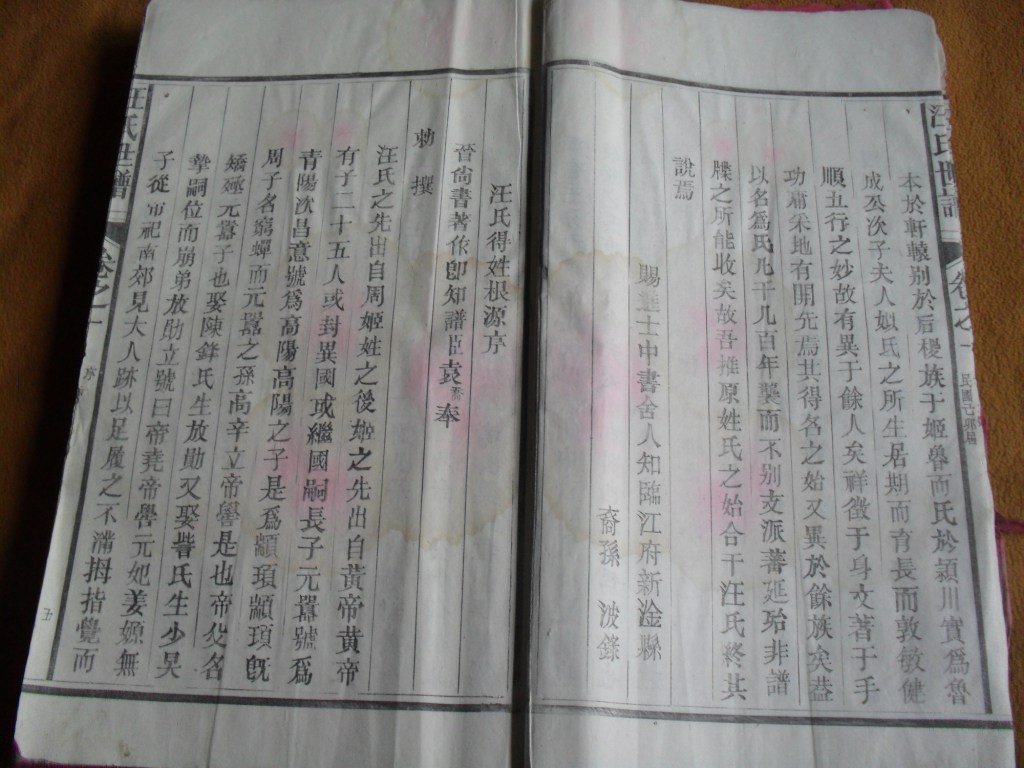 汪氏世譜
卷之一
本於軒轅别於后稷族于姬魯而氏於潁川實爲魯
成公次子夫人姒氏之所生居期而育長而敦敏健
順五行之妙故有異于餘人矣祥徵于身文著于手
功庸釆地有開先焉其得名之始又異於餘族矣葢
以名爲氏凡千几百年襲而不别支派蕃延殆非譜
牒之所能收矣故吾推原姓氏之始合干汪氏終其
說焉
賜進士中書舍人知臨江府新淦縣
裔孫 波錄
汪氏得姓根源序
晉尙書著作郎知譜臣袁 奉
勅撰
汪氏之先出自周姬姓之後姬之先出自黃帝黃帝
有子二十五人或封異國或繼國嗣長子元囂號爲
靑陽次昌意號爲高陽高陽之子是爲顓頊顓頊旣
周子名窮蟬而元囂之孫高辛立帝嚳是也帝父名
蟜極元囂子也娶陳鋒氏生放勛又娶訾氏生少昊
摯嗣位而崩弟放勛立號曰帝堯帝嚳元妃姜嫄無
子從 祀南郊見大人跡以足履之不滿拇指覺而
汪氏世譜
卷之一
序